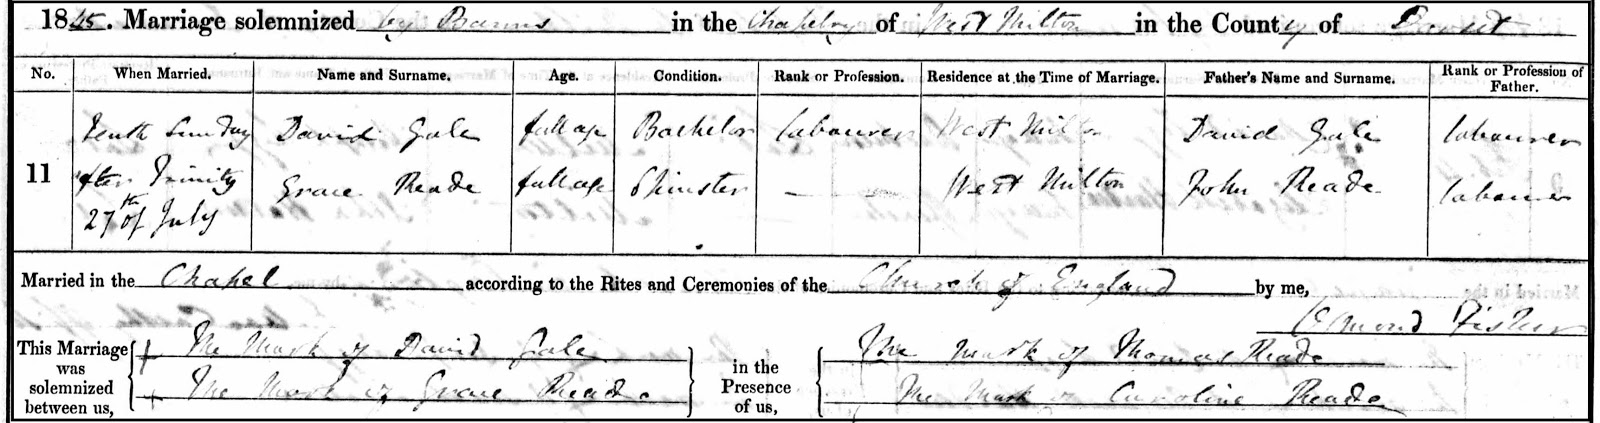 1845. Marriage solemnized by Banns in the Chapelry of West Milton in the County of Dorset
No. When Married. Name and Surname. Age. Condition. Rank or Profession. Residence at the Time of Marriage. Father's Name and Surname. Rank or Profession of Father.
Tenth Sunday David Gale full age Bachelor labourer West Milton David Gale labourer
11 after Trinity Grace Reade full age Spinster — — West Milton John Reade labourer
27th of July
Married in the Chapel according to the Rites and Ceremonies of the Church of England by me,
Edmond Fisher
This Marriage was solemnized between us, The Mark of David Gale in the Presence of us, The mark of Thomas Reade
The Mark of Grace Reade The Mark of Caroline Reade